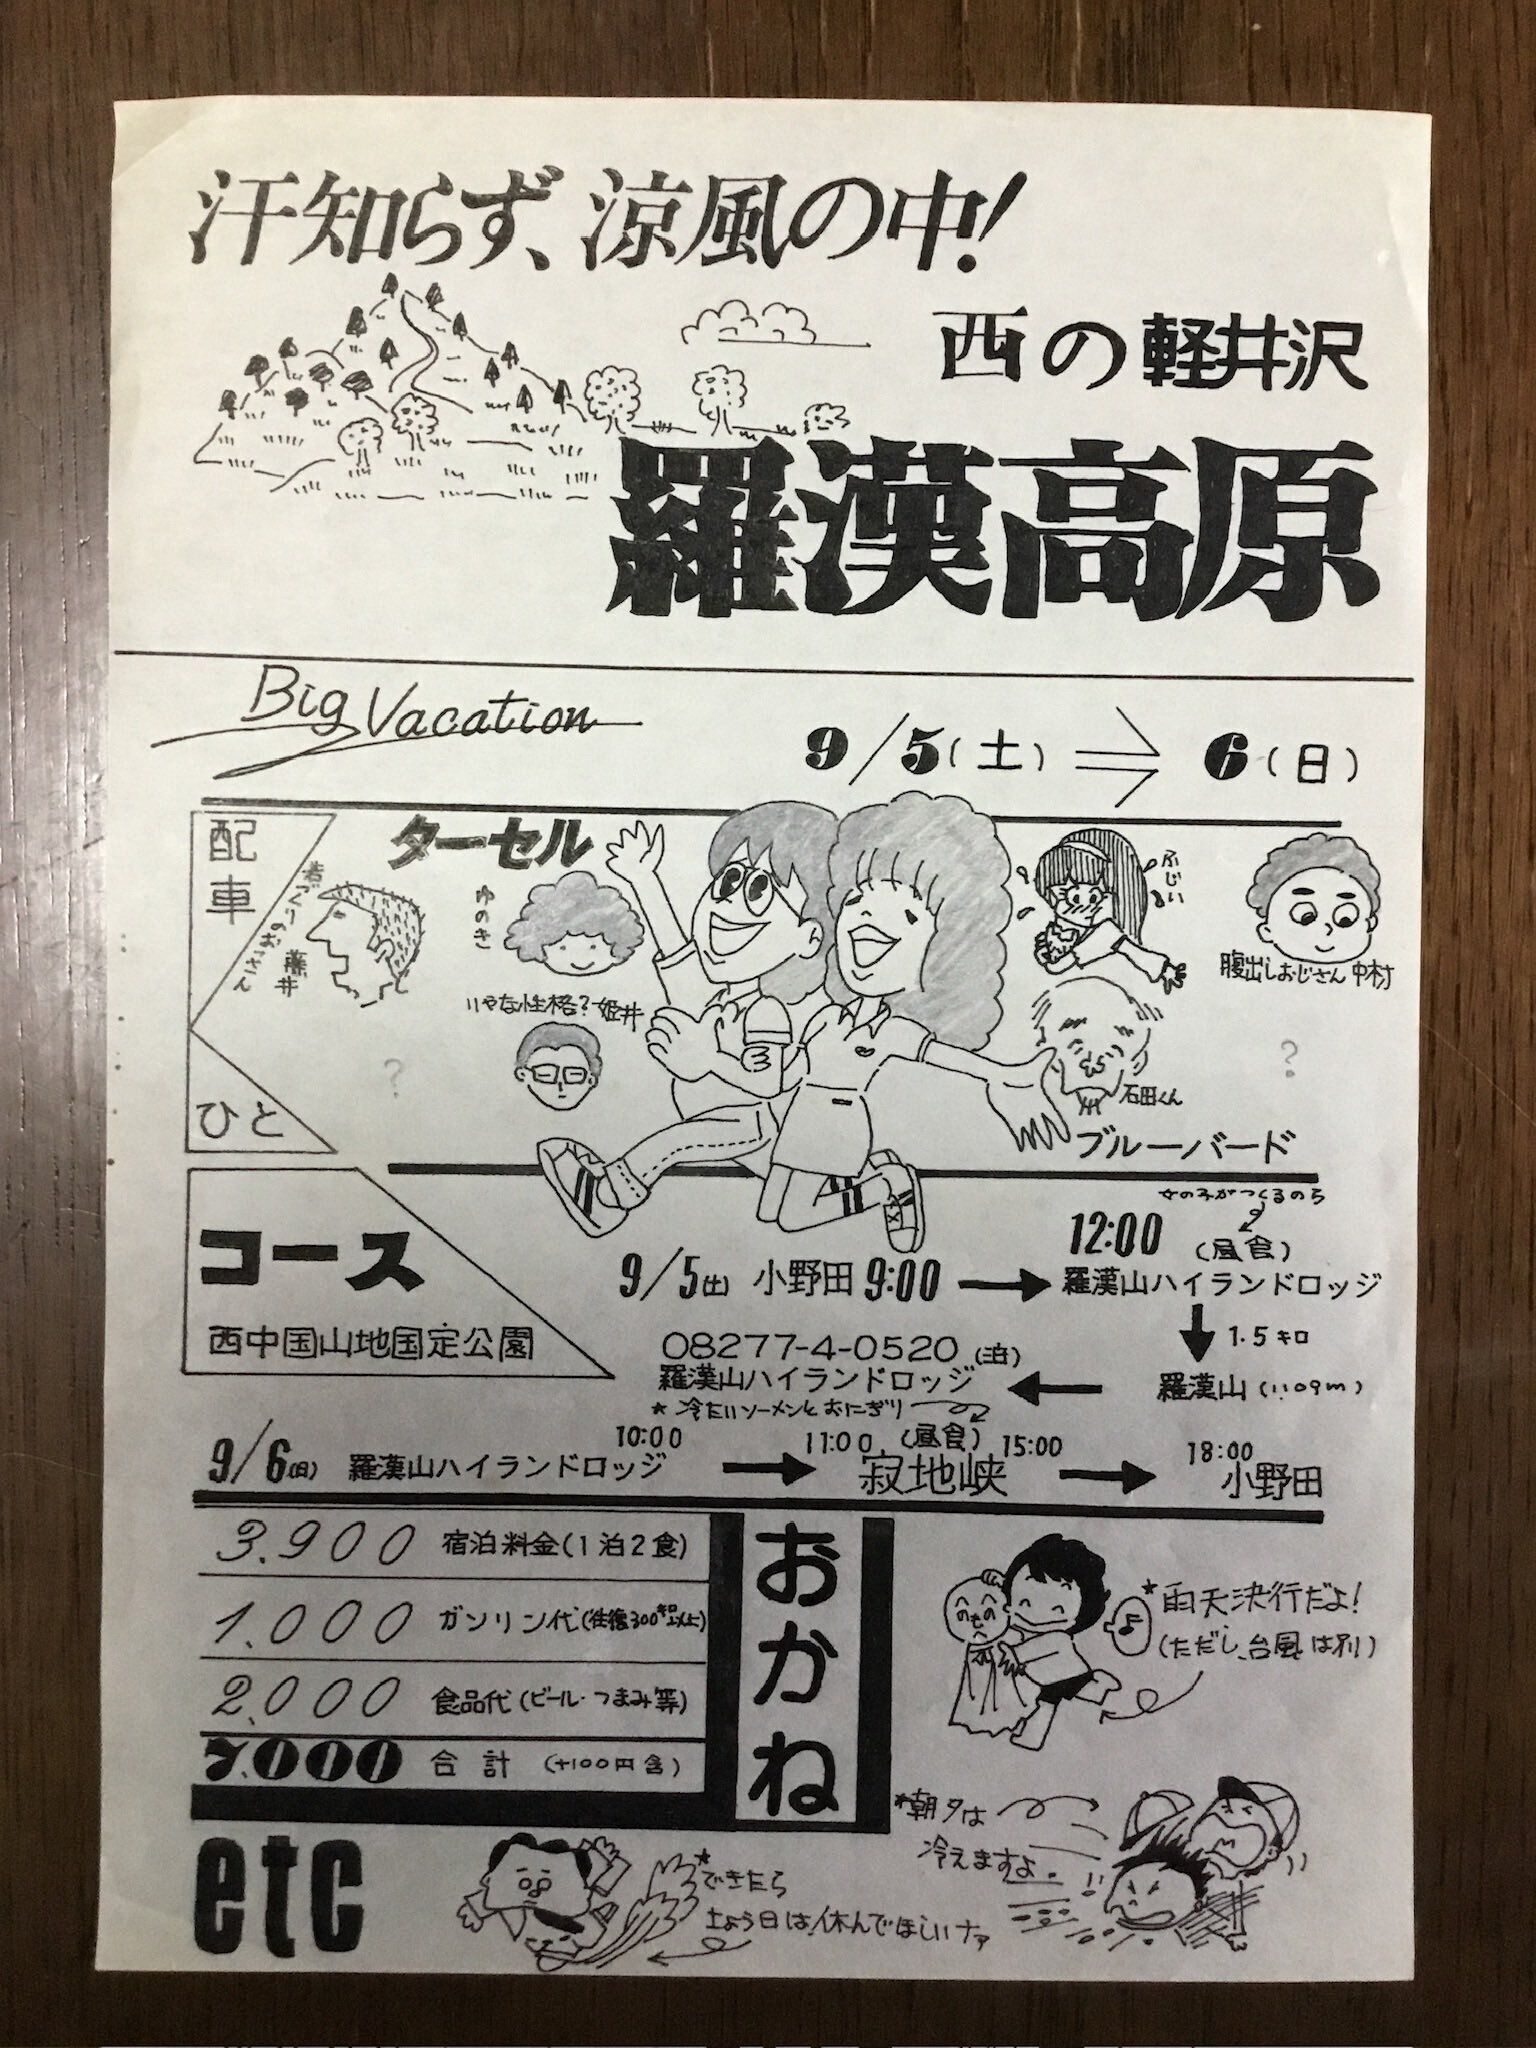 汗知らず、涼風の中!
西の軽井沢
羅漢高原
Big Vacation
9/5(土) ⇒ 6(日)
配車
ひと
ターセル
若づくりのおっさん
藤井
ゆのき
いやな性格?姫井
?
ふじい
腹出しおじさん中村
石田くん
?
ブルーバード
コース
西中国山地国定公園
女の子がつくるのら
9/5(土) 小野田 9:00 → 12:00 (昼食)
羅漢山ハイランドロッジ
↓ 1.5キロ
羅漢山(1109m)
←
08277-4-0520(泊)
羅漢山ハイランドロッジ
★冷たいソーメンとおにぎり
9/6(日) 羅漢山ハイランドロッジ 10:00 → 11:00 (昼食) 15:00
寂地峡 → 18:00
小野田
おかね
3.900 宿泊料金(1泊2食)
1.000 ガソリン代(往復300キロ以上)
2.000 食品代(ビール・つまみ等)
7.000 合計 (+100円含)
★雨天決行だよ!
(ただし、台風は別)
★朝夕は
冷えますよ。
etc
★できたら
土よう日は休んでほしいナァ